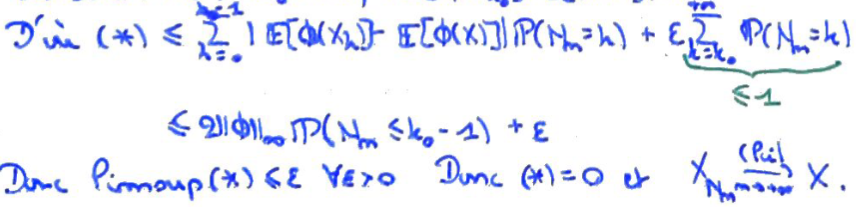 D'où (*) ≤ ∑_{k=0}^{k₀-1} |E[Φ(X_k)] - E[Φ(X)]| P(N_m=k) + ε ∑_{k=k₀}^{+∞} P(N_m=k)
≤ 1
≤ 2||Φ||_∞ P(N_m ≤ k₀-1) + ε
Donc limsup(*) ≤ ε ∀ε>0 Donc (*)=0 et X_{N_m} →^{(loi)}_{m→+∞} X.